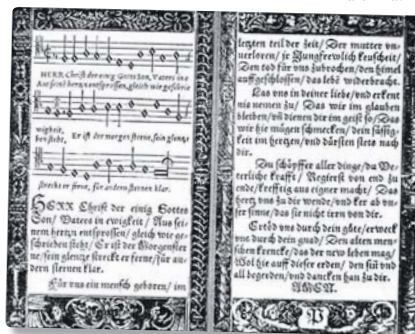 HERR Christ der einig Gottes Son, Vaters inn
Aus seinē hertzn entsprossen, gleich wie geschrie
wigkeit,
ben steht, Er ist der morgen sterne, sein glentze
streckt er ferne, für andern sternen klar.
HERR Christ der einig Gottes
Son/ Vaters in ewigkeit/ Aus sei-
nem hertzn entsprossen/ gleich wie ge-
schrieben steht/ Er ist der Morgenster
ne/ sein glentze streckt er ferne/ für an-
dern sternen klar.
Für vns ein mensch geboren/ im
letzten teil der zeit/ Der mutter vn-
uerloren/ jr Jungfrewlich keuscheit/
Den tod für vns zubrochen/ den himel
auffgeschlossen/ das lebē widerbracht.
Las vns in deiner liebe/ vnd erkent
nis nemen zu/ Das wir im glauben
bleiben/ vñ dienen dir im geist so/ Das
wir hie mügen schmecken/ dein süssig-
keit im hertzen/ vnd dürsten stets nach
dir.
Du schöpffer aller dinge/ du Ve-
terliche krafft/ Regierst von end zu
ende/ krefftig aus eigner macht/ Das
hertz vns zu dir wende/ vnd ker ab vn-
ser sinne/ das sie nicht irrn von dir.
Ertöd vns durch dein güte/ erweck
vns durch dein gnad/ Den alten men-
schen krencke/ das der new leben mag/
Wol hie auff dieser erden/ den sin vnd
all begerden/ vnd dancken han zu dir.
AMEN.